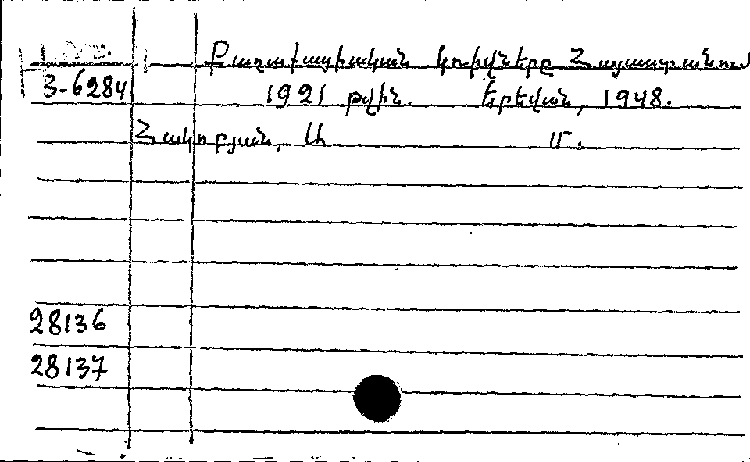 Քաղաքացիական կռիվները Հայաստանում
3-6284 1921 թվին. Երեվան, 1948.
Հակոբյան, Ա մ.
28136
28137